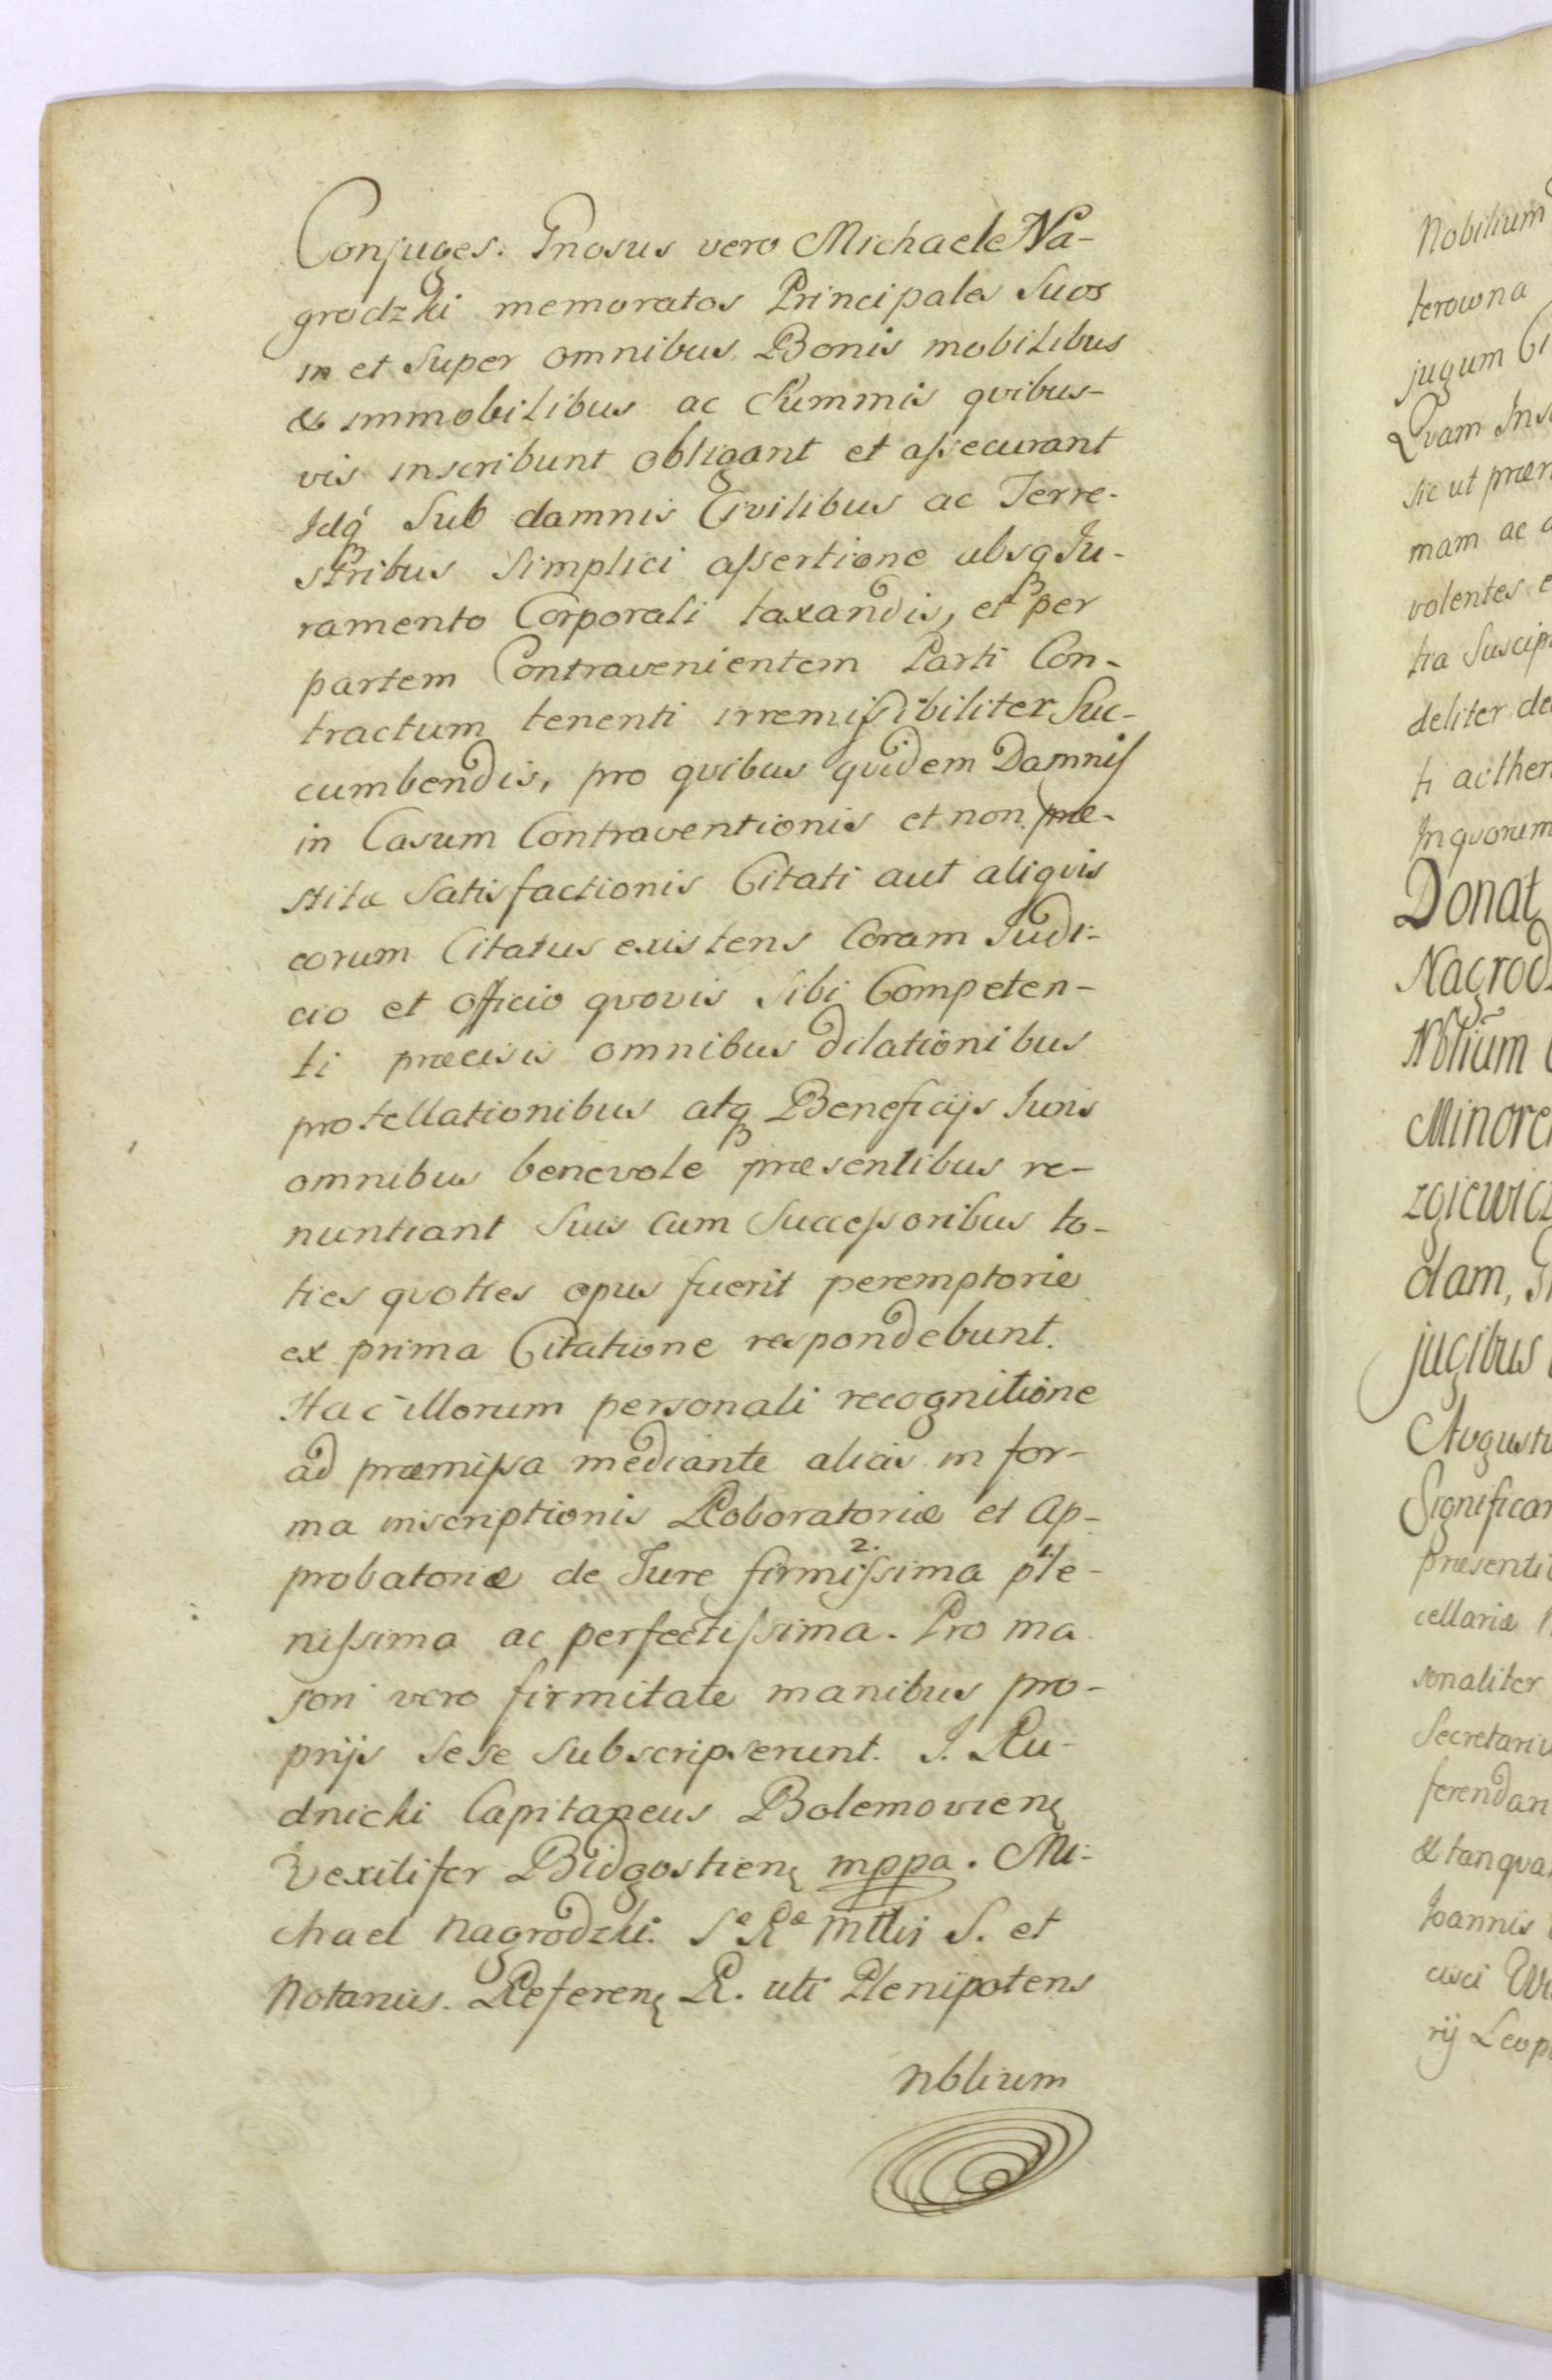 Conjuges. Gnosus vero Michaele Na-
grodzki memoratos Principales Suos
in et Super omnibus Bonis mobilibus
& immobilibus ac Summis qvibus-
vis inscribunt obligant et assecurant
Idq́ Sub damnis Civilibus ac Terre-
stribus Simplici assertione absq Ju-
ramento Corporali taxandis, et per
partem Contravenientem Parti Con-
tractum tenenti irremissibiliter Suc-
cumbendis, pro qvibus qvidem Damnis
in Casum Contraventionis et non præ-
stitæ Satisfactionis Citati aut aliqvis
eorum Citatus existens Coram Judi-
cio et Officio qvovis Sibi Competen-
ti præcisis omnibus dilationibus
protellationibus atq Beneficijs Juris
omnibus benevole præsentibus re-
nuntiant Suis cum Successoribus to-
ties qvoties opus fuerit peremptorie
ex prima Citatione respondebunt.
Hac illorum personali recognitione
ad præmissa mediante alias in for-
ma inscriptionis Roboratoriæ et Ap-
probatoriæ de Jure firmissima ple-
nissima ac perfectissima. Pro ma
jori vero firmitate manibus pro-
prijs sese Subscripserunt. J. Ru-
dnicki Capitaneus Bolemovien
Vexilifer Bidgostien mppa. Mi-
chael Nagrodzki. S R Mttis S. et
Notarius. Referen R. uti Plenipotens
Nblium
Nobilium
terowna
jugum
Qvam
sic ut
mam ac
volentes
tia
deliter
ti
Inqvorum
Donat
Nagrod
Nblium
Minore
zgiewicz
dam,
jugibus
Augustu
Significa
præsenti
cellariæ
sonaliter
Secretari
ferendan
& tanqva
Joannis
cisci
rij Leop